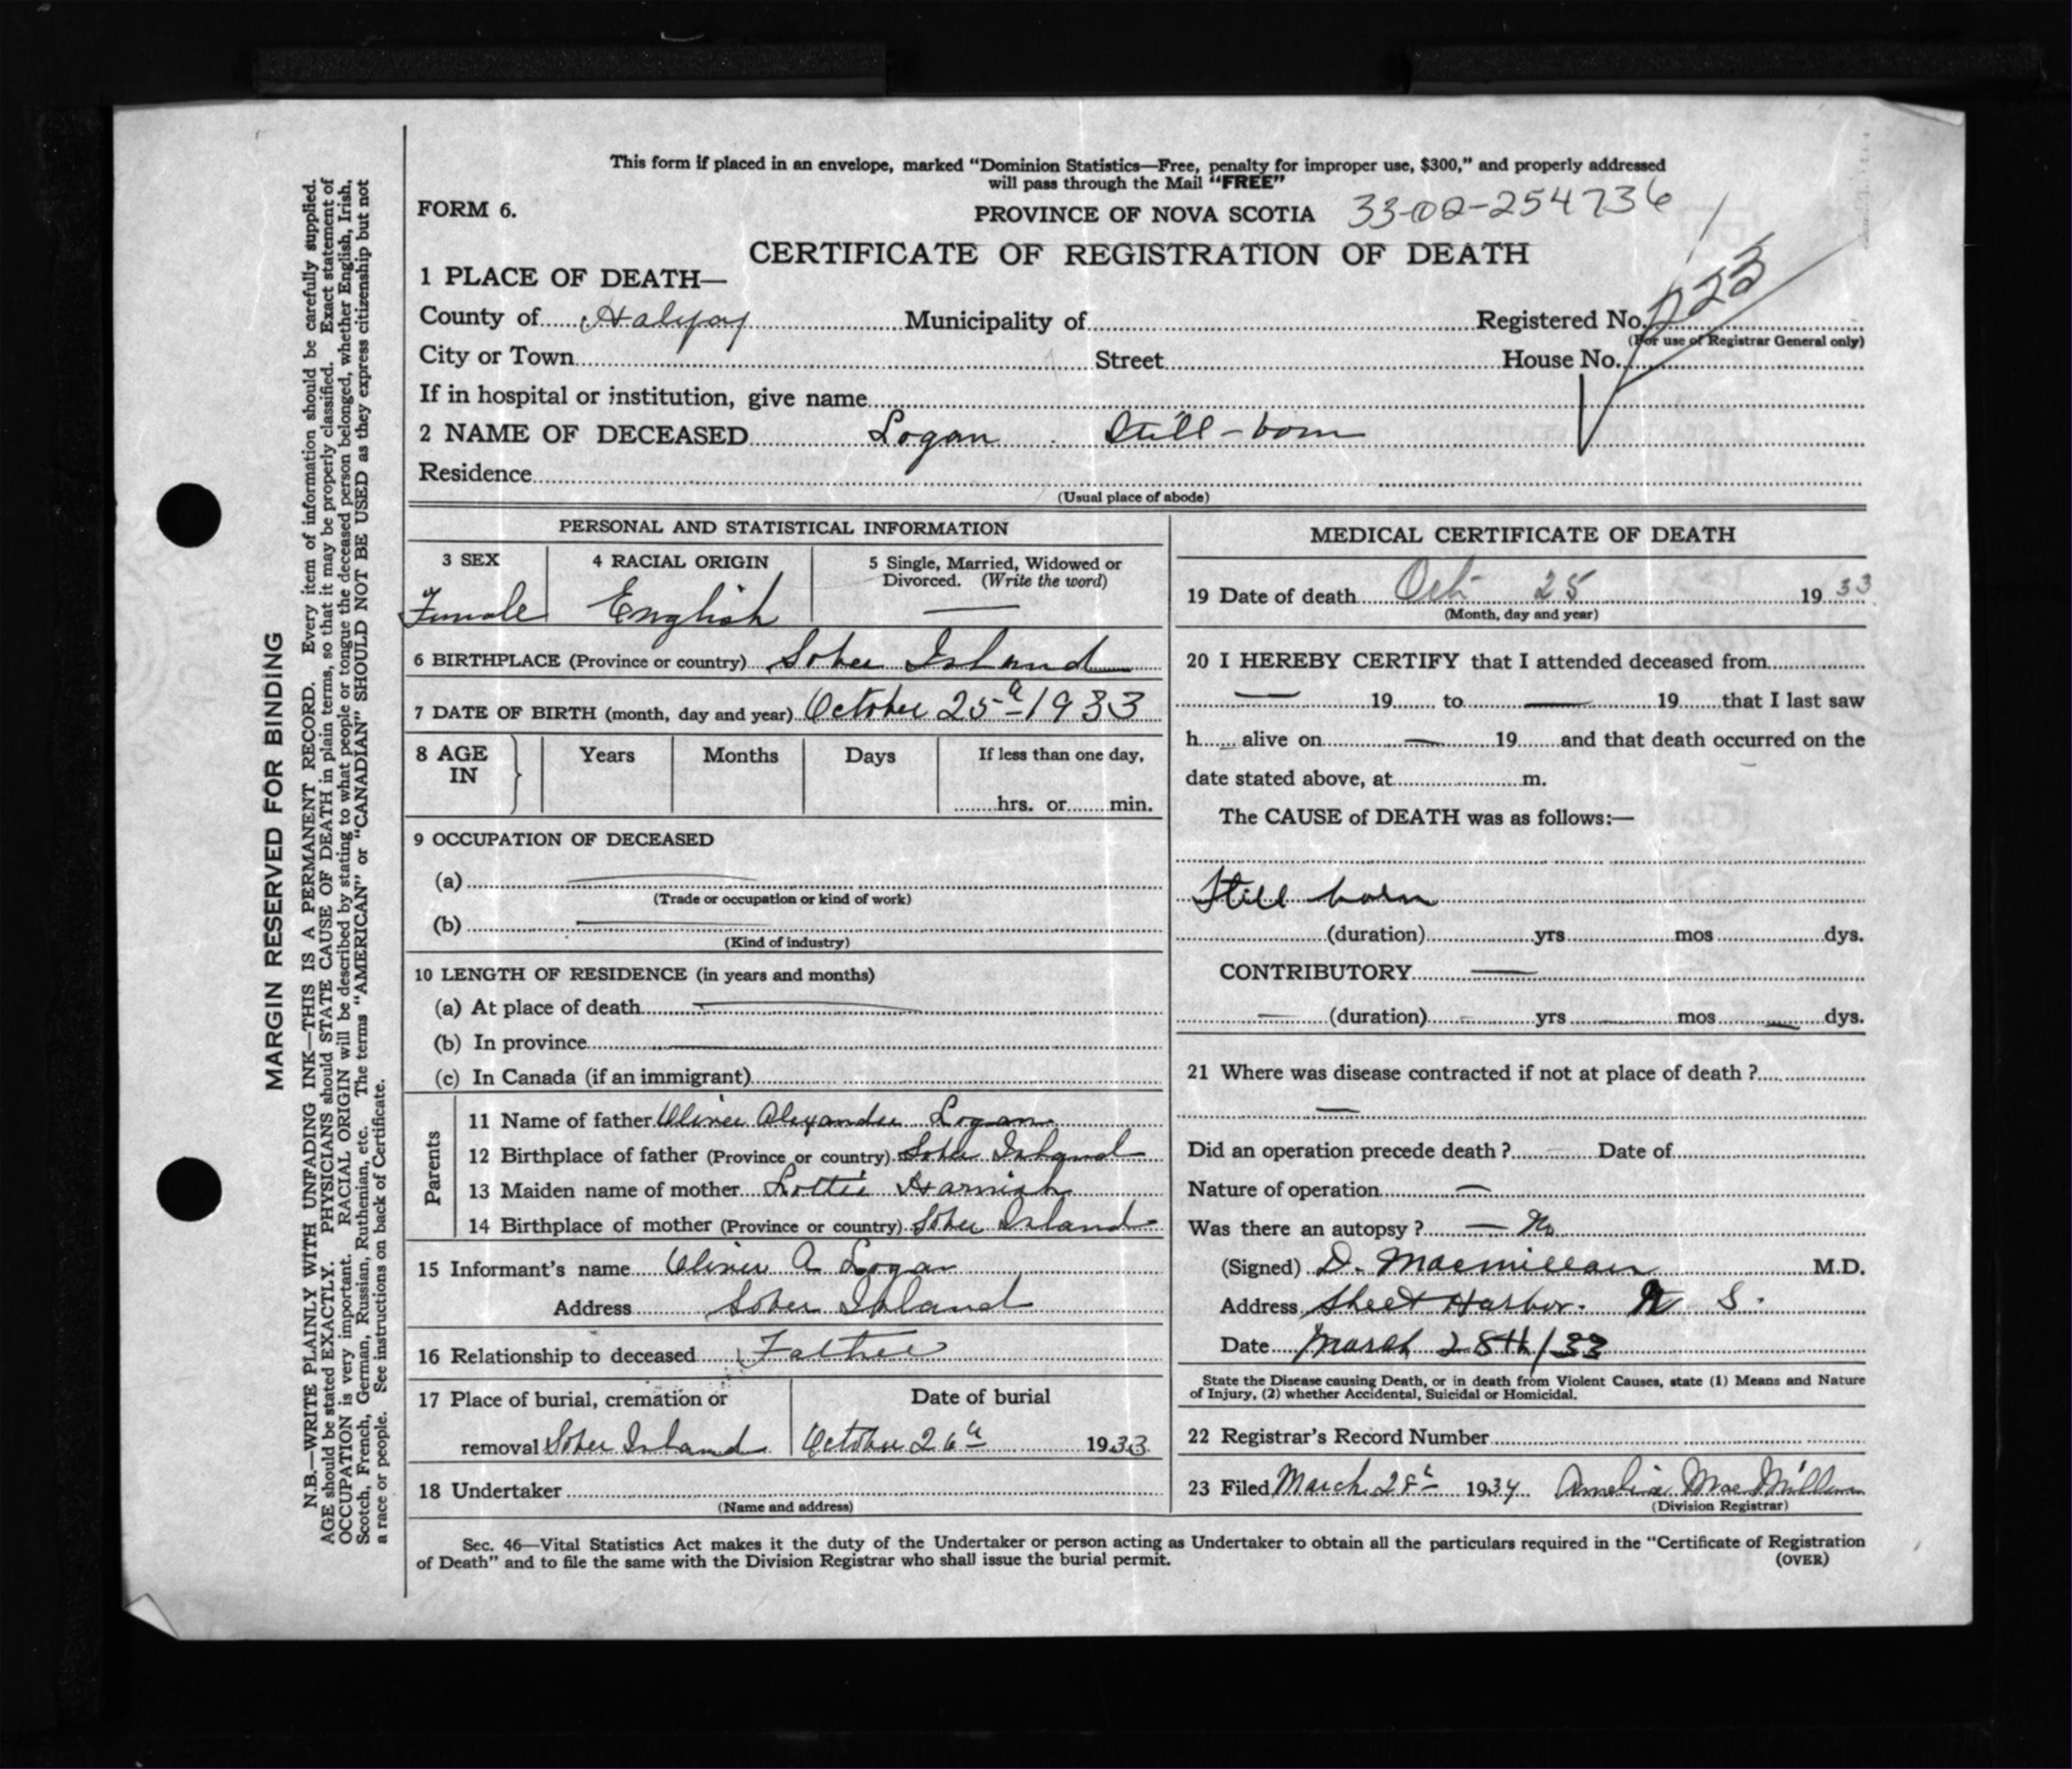 This form if placed in an envelope, marked "Dominion Statistics—Free, penalty for improper use, $300," and properly addressed
will pass through the Mail "FREE"
FORM 6.
PROVINCE OF NOVA SCOTIA 33-02-254736
CERTIFICATE OF REGISTRATION OF DEATH
1 PLACE OF DEATH—
County of Halifax Municipality of Registered No. 223
(For use of Registrar General only)
City or Town Street House No.
If in hospital or institution, give name
2 NAME OF DECEASED Logan Still-born
Residence
(Usual place of abode)
PERSONAL AND STATISTICAL INFORMATION
3 SEX 4 RACIAL ORIGIN 5 Single, Married, Widowed or
Divorced. (Write the word)
Female English —
6 BIRTHPLACE (Province or country) Sober Island
7 DATE OF BIRTH (month, day and year) October 25th 1933
8 AGE IN Years Months Days If less than one day,
hrs. or min.
9 OCCUPATION OF DECEASED
(a)
(Trade or occupation or kind of work)
(b)
(Kind of industry)
10 LENGTH OF RESIDENCE (in years and months)
(a) At place of death
(b) In province
(c) In Canada (if an immigrant)
Parents
11 Name of father Oliver Alexander Logan
12 Birthplace of father (Province or country) Sober Island
13 Maiden name of mother Lottie Harnish
14 Birthplace of mother (Province or country) Sober Island
15 Informant's name Oliver A Logan
Address Sober Island
16 Relationship to deceased Father
17 Place of burial, cremation or Date of burial
removal Sober Island October 26th 1933
18 Undertaker
(Name and address)
MEDICAL CERTIFICATE OF DEATH
19 Date of death Oct 25 1933
(Month, day and year)
20 I HEREBY CERTIFY that I attended deceased from
— 19 to — 19 that I last saw
h alive on — 19 and that death occurred on the
date stated above, at m.
The CAUSE of DEATH was as follows:—
Still born
(duration) yrs mos dys.
CONTRIBUTORY —
— (duration) — yrs — mos — dys.
21 Where was disease contracted if not at place of death ?
—
Did an operation precede death ? — Date of
Nature of operation —
Was there an autopsy ? — No
(Signed) D. Macmillan M.D.
Address Sheet Harbor. N S.
Date March 28th/33
State the Disease causing Death, or in death from Violent Causes, state (1) Means and Nature
of Injury, (2) whether Accidental, Suicidal or Homicidal.
22 Registrar's Record Number
23 Filed March 28th 1934 Amelia MacMillan
(Division Registrar)
Sec. 46—Vital Statistics Act makes it the duty of the Undertaker or person acting as Undertaker to obtain all the particulars required in the "Certificate of Registration
of Death" and to file the same with the Division Registrar who shall issue the burial permit. (OVER)
MARGIN RESERVED FOR BINDING
N.B.—WRITE PLAINLY WITH UNFADING INK—THIS IS A PERMANENT RECORD. Every item of information should be carefully supplied.
AGE should be stated EXACTLY. PHYSICIANS should STATE CAUSE OF DEATH in plain terms, so that it may be properly classified. Exact statement of
OCCUPATION is very important. RACIAL ORIGIN will be described by stating to what people or tongue the deceased person belonged, whether English, Irish,
Scotch, French, German, Russian, Ruthenian, etc. The terms "AMERICAN" or "CANADIAN" SHOULD NOT BE USED as they express citizenship but not
a race or people. See instructions on back of Certificate.